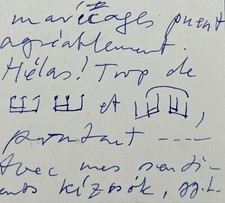 marécages puent
agréablement.
Hélas! Trop de
et
pourtant ----
Avec mes senti-